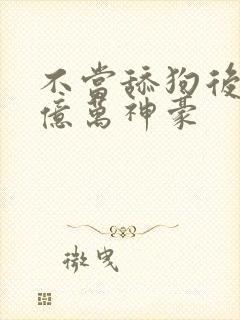 不當舔狗後
億萬神豪
微曳